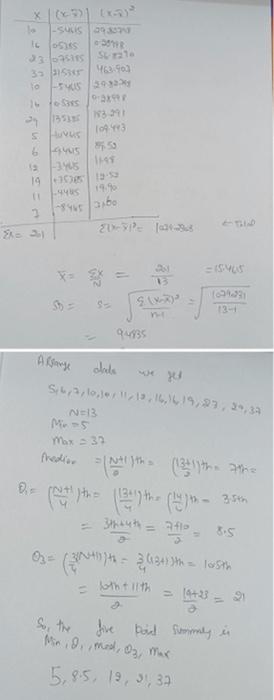 x | (x-x̄) | (x-x̄)²
10 -5.4615 29.82798
16 0.5385 0.28998
23 7.5385 56.8290
37 21.5385 463.903
10 -5.4615 29.82798
16 0.5385 0.28998
29 13.5385 183.291
5 -10.4615 109.443
6 -9.4615 89.52
12 -3.4615 11.98
19 +3.5385 12.52
11 -4.4615 19.90
7 -8.4615 71.60
Σx = 201 Σ(x-x̄)² = ← Total
x̄ = Σx/N = 201/13 = 15.4615
S = √Σ(x-x̄)²/n-1 = √1079.231/13-1
= 9.4835
Arrange data we get
5,6,7,10,10,11,12,16,16,19,23,29,37
N=13
Min = 5
Max = 37
Median = (N+1/2)th = (13+1/2)th = 7th =
Q₁ = (N+1/4)th = (13+1/4)th = (14/4)th = 3.5th
= 3th+4th/2 = 7+10/2 = 8.5
Q3 = (3/4(N+1))th = 3/4(13+1)th = 10.5th
= 10th+11th/2 = 19+23/2 = 21
So, the five point summary is
Min, Q₁, med, Q3, Max
5, 8.5, 12, 21, 37